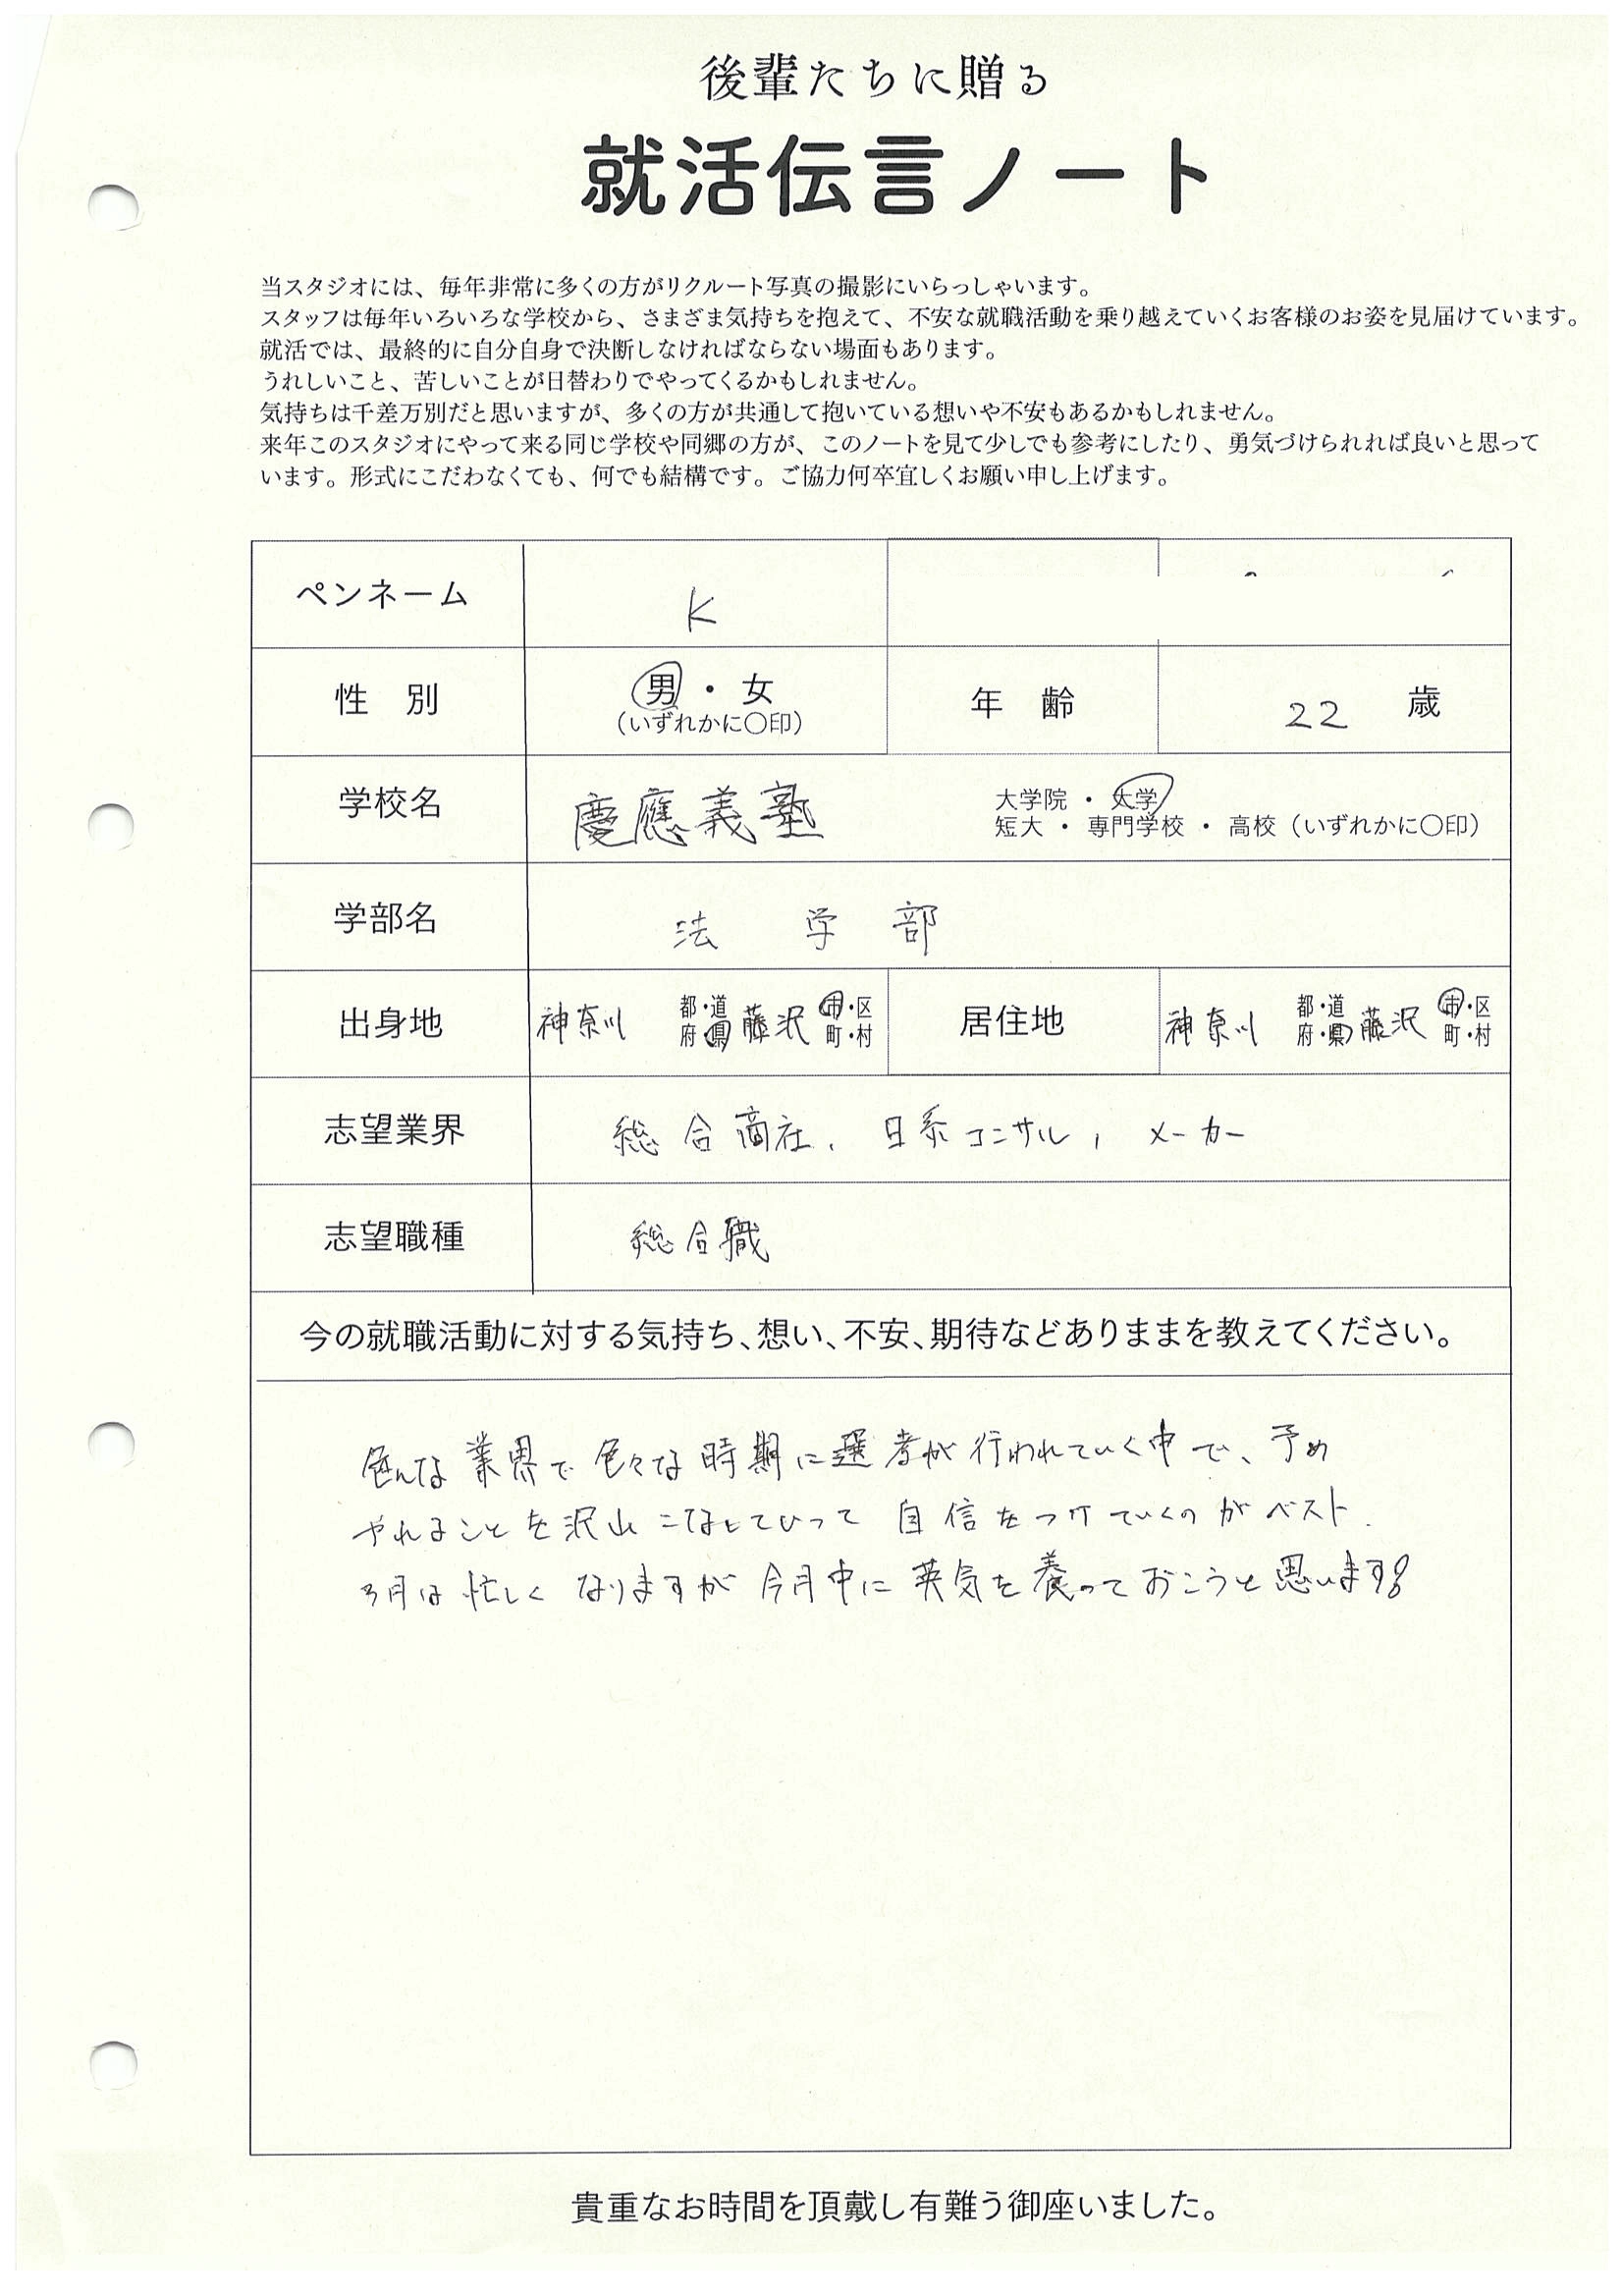 後輩たちに贈る
就活伝言ノート
当スタジオには、毎年非常に多くの方がリクルート写真の撮影にいらっしゃいます。
スタッフは毎年いろいろな学校から、さまざま気持ちを抱えて、不安な就職活動を乗り越えていくお客様のお姿を見届けています。
就活では、最終的に自分自身で決断しなければならない場面もあります。
うれしいこと、苦しいことが日替わりでやってくるかもしれません。
気持ちは千差万別だと思いますが、多くの方が共通して抱いている想いや不安もあるかもしれません。
来年このスタジオにやって来る同じ学校や同郷の方が、このノートを見て少しでも参考にしたり、勇気づけられれば良いと思って
います。形式にこだわなくても、何でも結構です。ご協力何卒宜しくお願い申し上げます。
ペンネーム K
性 別 男・女 年 齢 22 歳
(いずれかに〇印)
学校名 慶應義塾 大学院・大学
短大・専門学校・高校(いずれかに〇印)
学部名 法学部
出身地 神奈川 都・道 府・県 藤沢 市・区 町・村 居住地 神奈川 都・道 府・県 藤沢 市・区 町・村
志望業界 総合商社、日系コンサル、メーカー
志望職種 総合職
今の就職活動に対する気持ち、想い、不安、期待などありままを教えてください。
色んな業界で色々な時期に選考が行われていく中で、予め
やれることを沢山こなしていって自信をつけていくのがベスト.
3月は忙しくなりますが今月中に英気を養っておこうと思います!
貴重なお時間を頂戴し有難う御座いました。